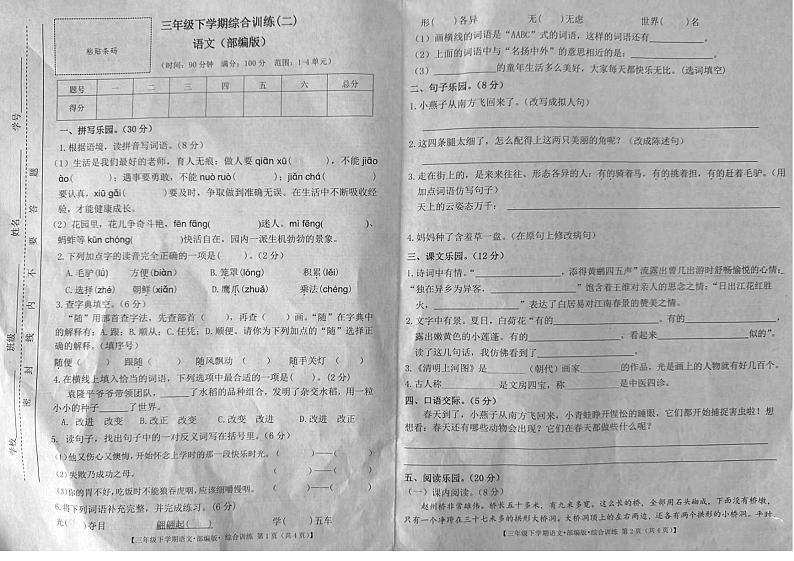 三年级下学期综合训练(二)
语文（部编版）
粘贴条码
（时间：90分钟 满分：100分 范围：1-4单元）
题号 一 二 三 四 五 六 总分
得分
学校 班级 姓名 学号
密 封 线 内 不 要 答 题
一、拼写乐园。（30分）
1.根据语境，读拼音写词语。（8分）
（1）生活是我们最好的老师，育人无痕：做人要qiān xū（ ），不能jiāo
ào（ ）；遇事要勇敢，不能nuò ruò（ ）；jiǎn chá（ ）
要认真，xiū gǎi（ ）要及时，争取做到准确无误。在生活中不断吸收经
验，才能健康成长。
（2）花园里，花儿争奇斗艳，fēn fāng（ ）迷人，mì fēng（ ）、
蚂蚱等kūn chóng（ ）快活自在，园内一派生机勃勃的景象。
2.下列加点字的读音完全正确的一项是（ ）。（2分）
A.毛驴(lǘ) 方便(biàn) B.笼罩(lóng) 积累(lěi)
C.选择(zhé) 朝鲜(xiǎn) D.鹰爪(zhuǎ) 乘法(chéng)
3.查字典填空。（6分）
“随”用部首查字法，先查部首（ ），再查（ ）画。“随”在字典中
的解释有：A.跟；B.顺从；C.任凭；D.顺便。请你为下列加点的“随”选择正
确的解释。（填序号）
随便（ ） 跟随（ ） 随风飘动（ ） 随手关灯（ ）
4.在横线上填入恰当的词语，下列选项中最合适的一项是（ ）。（2分）
袁隆平爷爷带领团队，______了水稻的品种组合，发明了杂交水稻，用一粒
小小的种子______了世界。
A. 改进 改变 B. 改正 改进 C. 改变 改进 D.改进 改正
5. 读句子，找出句子中的一对反义词写在括号里。（6分）
(1)他又伤心又懊悔，开始怀念上学时的那一段快乐时光。（ ）——（ ）
(2)失败乃成功之母。 （ ）——（ ）
(3)你的胃不好，吃饭时不能狼吞虎咽，应该细嚼慢咽。（ ）——（ ）
6.将下列词语补充完整，并完成练习。（6分）
光（ ）夺目 翩翩起（ ） 学（ ）五车
【三年级下学期语文•部编版•综合训练 第1页（共4页）】
形（ ）各异 无（ ）无虑 世界（ ）名
（1）画横线的词语是“AABC”式的词语，这样的词语还有__________。
（2）上面的词语中与“名扬中外”的意思相近的是：__________。
（3）__________的童年生活多么美好，大家每天都快乐无比。(选词填空)
二、句子乐园。（8分）
1.小燕子从南方飞回来了。（改写成拟人句）
2.这四条腿太细了，怎么配得上这两只美丽的角呢？（改成陈述句）
3.走在街上的，是来来往往、形态各异的人：有的骑着马，有的挑着担，有的赶着毛驴。（用
加点词语仿写句子）
天上的云姿态万千：
4.妈妈种了含羞草一盘。（在原句上修改病句）
三、课文乐园。（12分）
1.诗词中有情。“__________，添得黄鹂四五声”流露出曾几出游时舒畅愉悦的心情；
“独在异乡为异客，__________”饱含着王维对亲人的思念之情；“日出江花红胜
火，__________”表达了白居易对江南春景的赞美之情。
2.文字中有景。夏日，白荷花“有的__________，有的__________，
露出嫩黄色的小莲蓬。有的__________，看起来__________似的”。
读了这几句话，我仿佛看到了__________。
3.《清明上河图》是______（朝代）画家______的作品，光是画上的人物就有好几百个。
4.古人称__________是文房四宝，称__________是中医四诊。
四、口语交际。（5分）
春天到了，小燕子从南方飞回来，小青蛙睁开惺忪的睡眼，它们都开始捕捉害虫啦！想
想看：春天还有哪些动物会出现？它们在春天都做些什么呢？
五、阅读乐园。（20分）
（一）课内阅读。（8分）
赵州桥非常雄伟。桥长五十多米，有九米多宽。这么长的桥，全部用石头砌成，下面没有桥墩，
只有一个净跨在三十七米多的拱形大桥洞。大桥洞顶上的左右两边，还各有两个拱形的小桥洞。平时，
【三年级下学期语文•部编版•综合训练 第2页（共4页）】